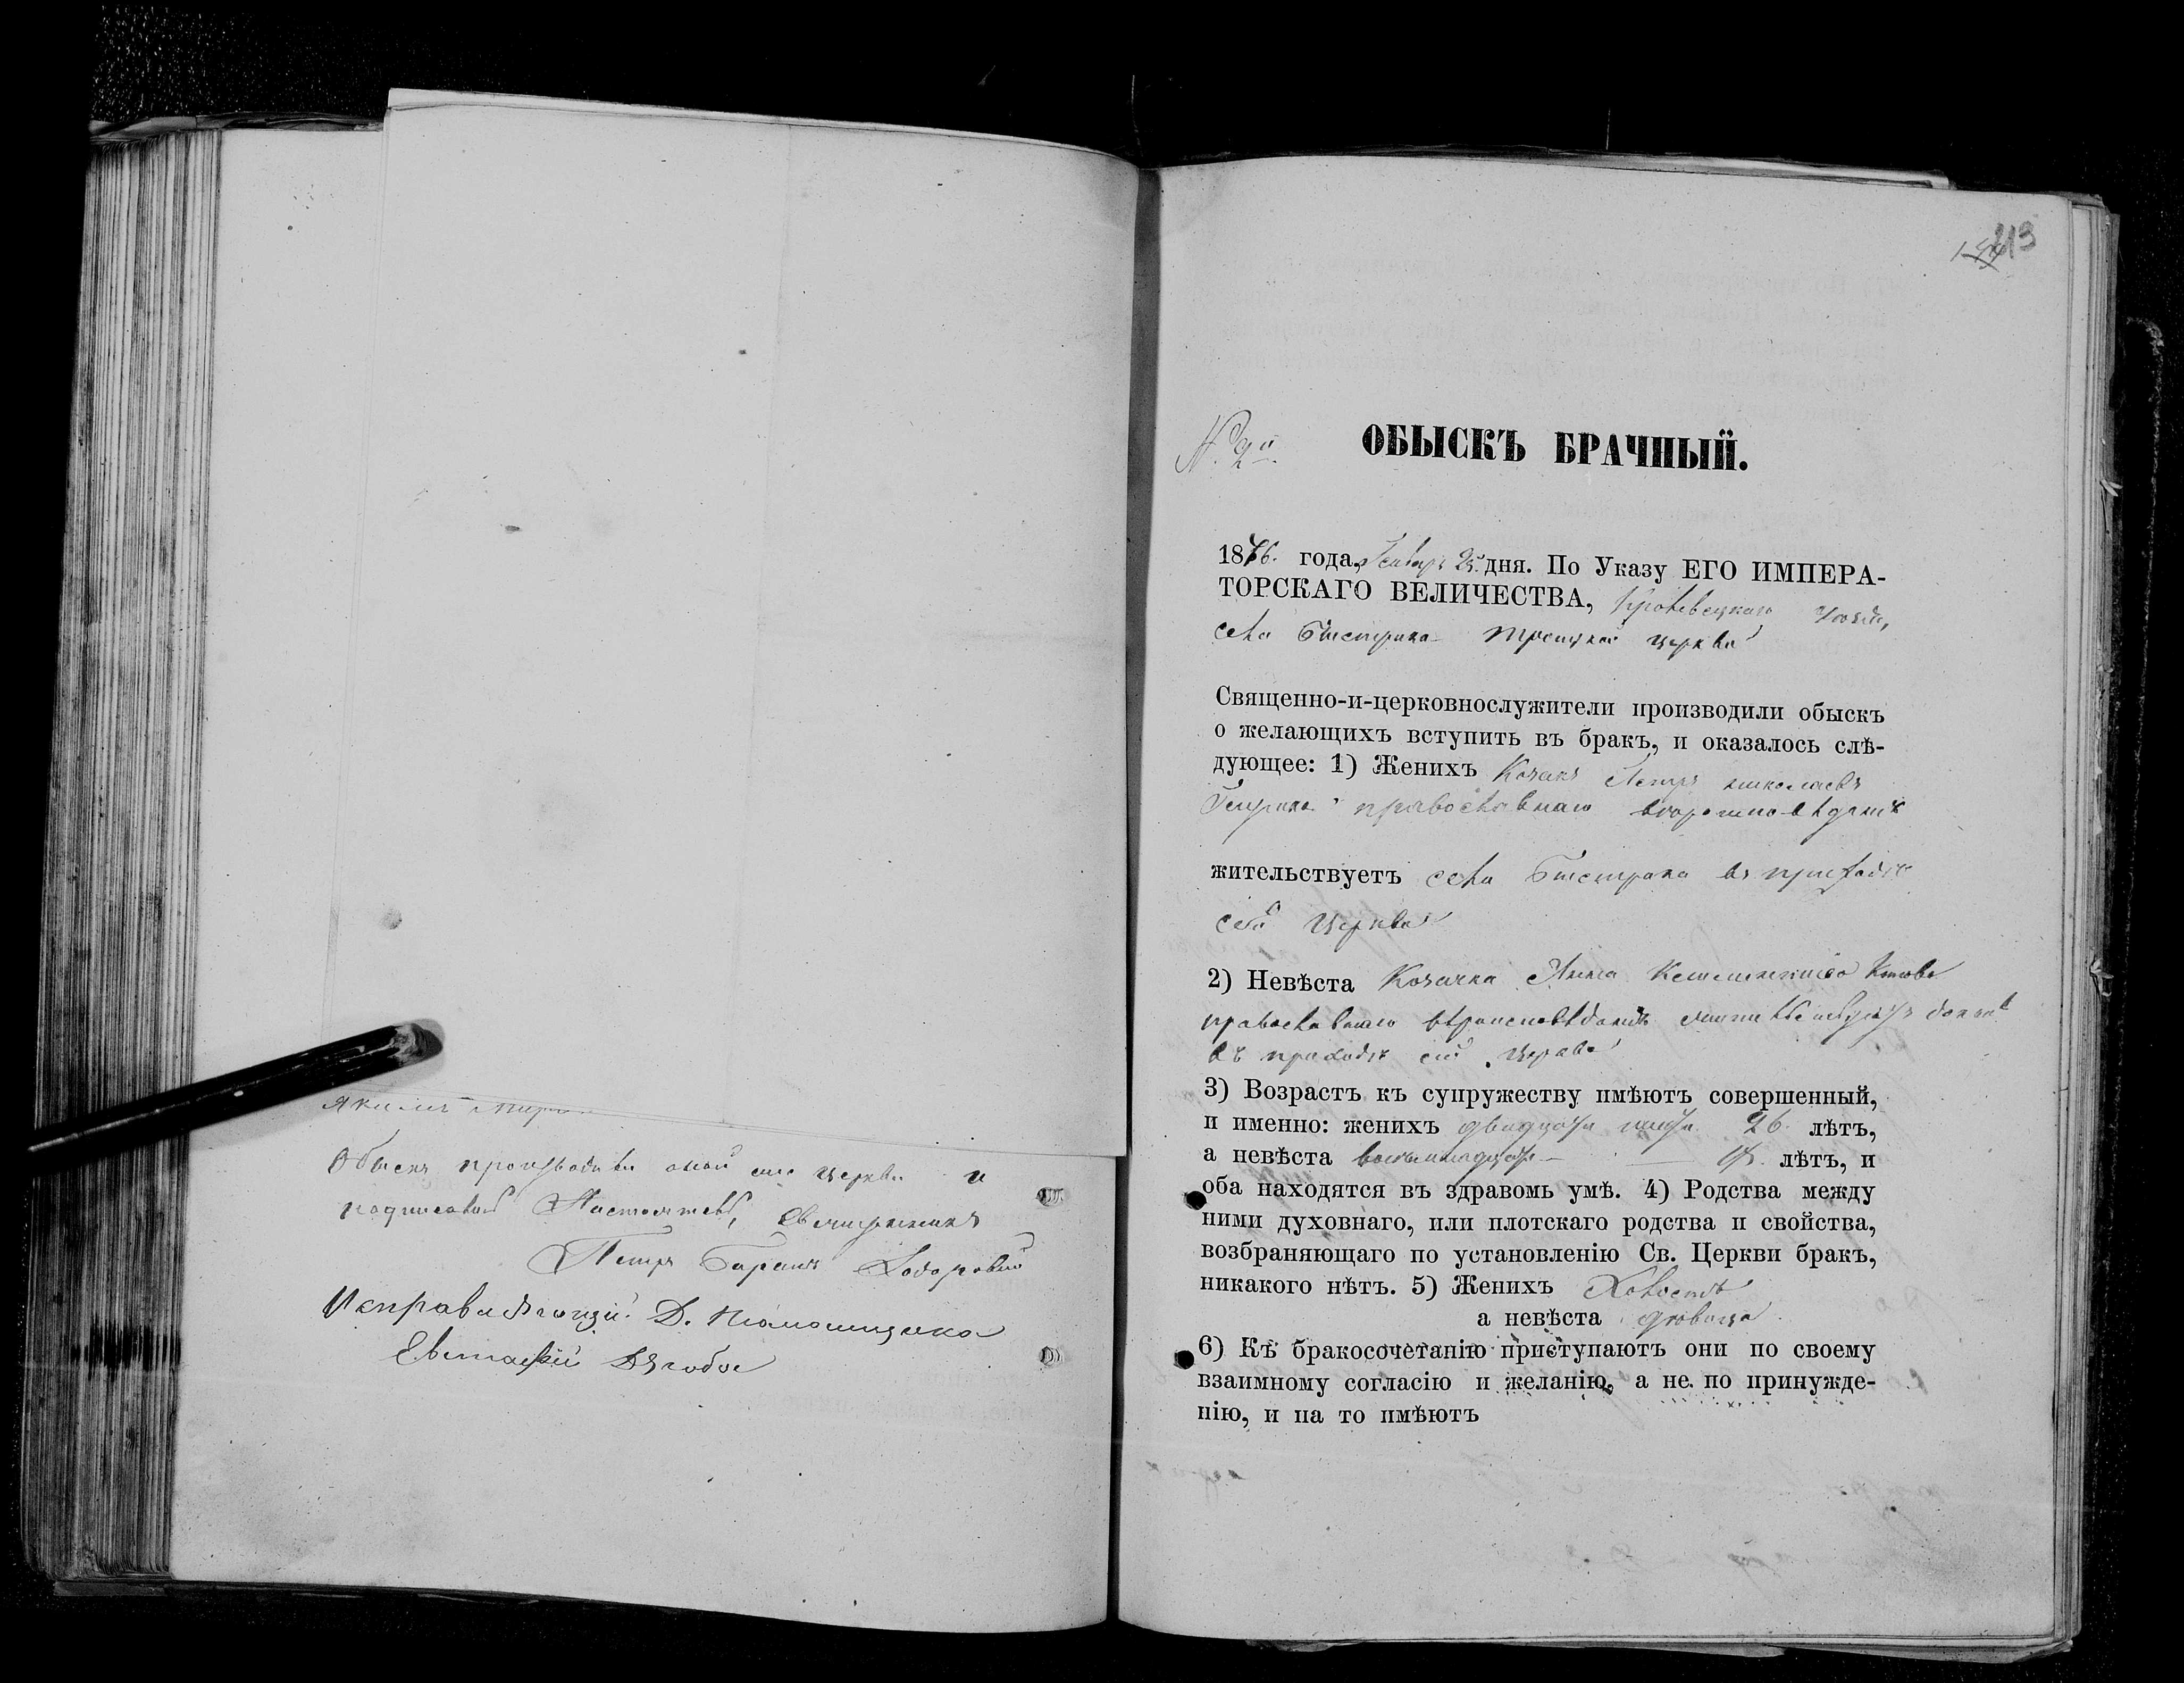 Обыскъ производили сей церкви и
подписалъ Настоятель, Священникъ
Петръ
Исправ. д. Псаломщика
Евстафій
213
ОБЫСКЪ БРАЧНЫЙ.
1876. года, Января 25. дня. По Указу ЕГО ИМПЕРА-
ТОРСКАГО ВЕЛИЧЕСТВА, Кролевецкаго уѣзда,
села Быстрика Троицкой церкви
Священно-и-церковнослужители производили обыскъ
о желающихъ вступить въ бракъ, и оказалось слѣ-
дующее: 1) Женихъ Козакъ Петръ Николаевъ
православнаго вѣроисповѣданія
жительствуетъ села Быстрика въ приходѣ
сей церкви
2) Невѣста Козачка Анна
православнаго вѣроисповѣданія жительствуетъ
въ приходѣ сей церкви
3) Возрастъ къ супружеству имѣютъ совершенный,
и именно: женихъ двадцати шести 26. лѣтъ,
а невѣста восемнадцати 18. лѣтъ, и
оба находятся въ здравомъ умѣ. 4) Родства между
ними духовнаго, или плотскаго родства и свойства,
возбраняющаго по установленію Св. Церкви бракъ,
никакого нѣтъ. 5) Женихъ Холостъ
а невѣста дѣвица
6) Къ бракосочетанію приступаютъ они по своему
взаимному согласію и желанію, а не по принужде-
нію, и на то имѣютъ